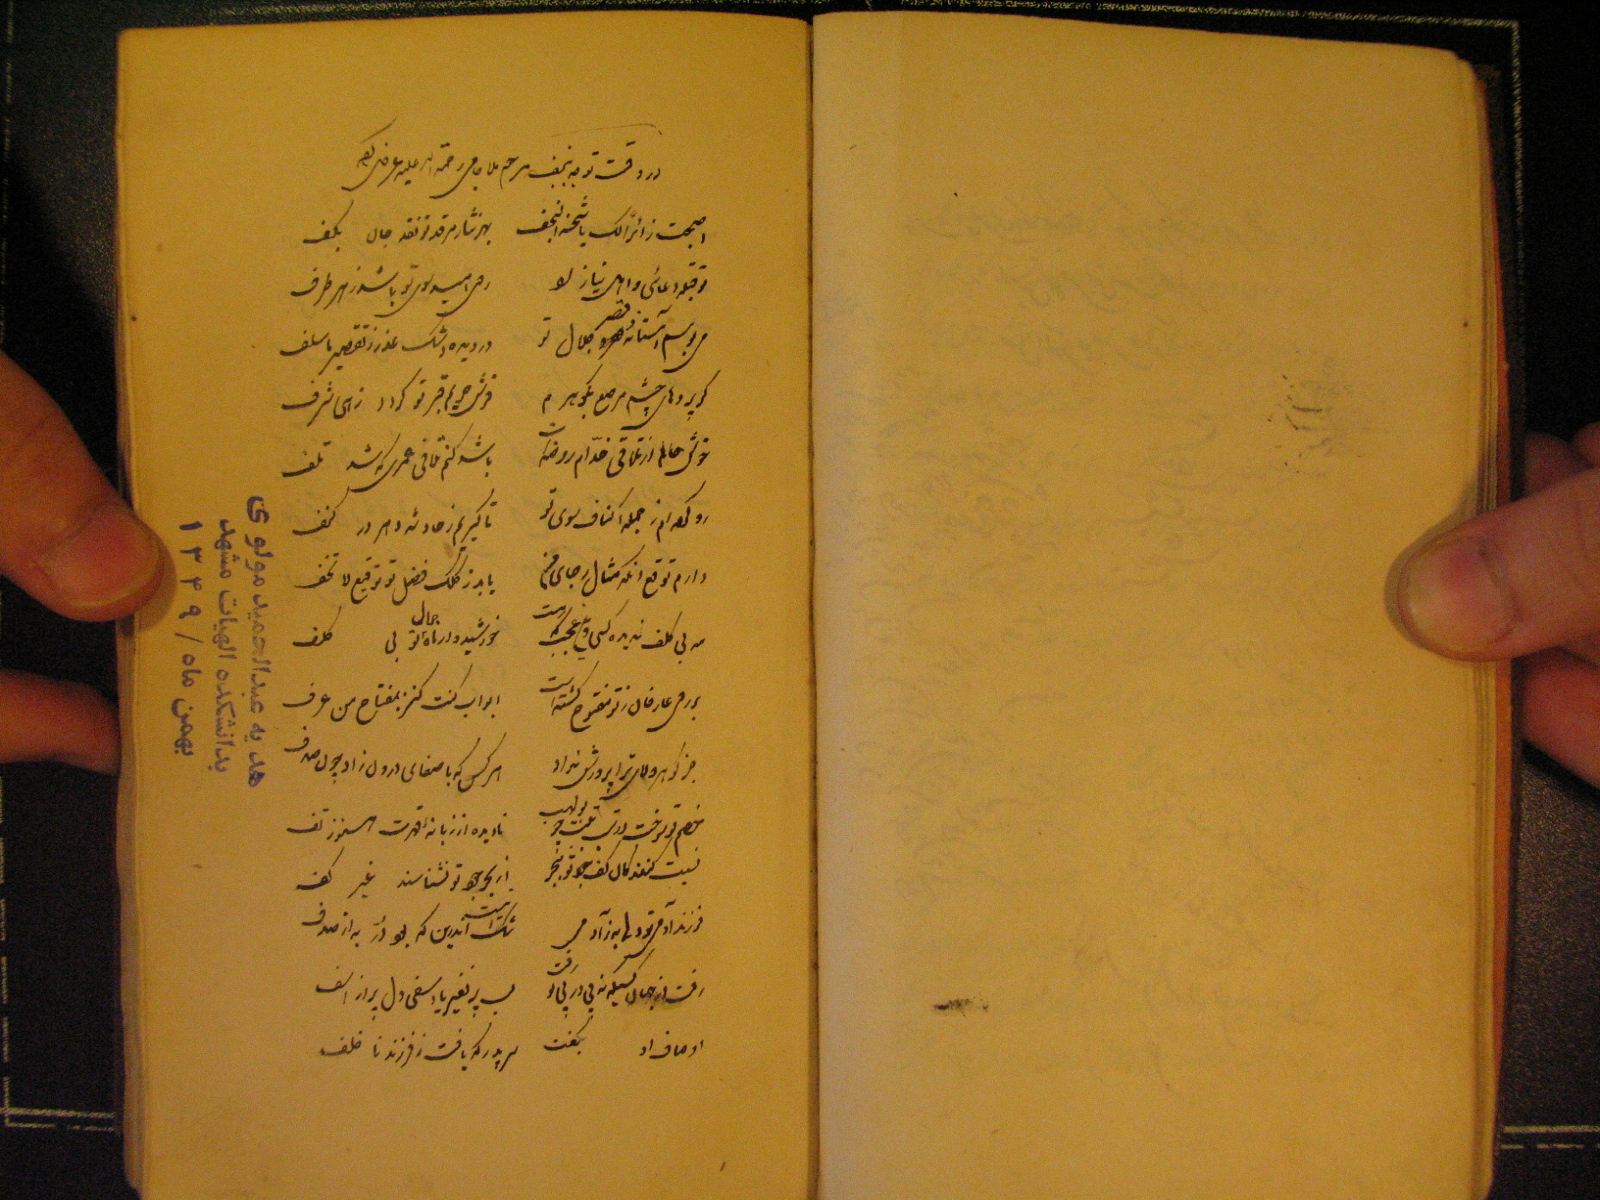 در وقت توجه بنجف مرحوم ملا جامی رحمة الله علیه عرض کرده
اصبحت زائرا لک یا شحنة النجف بهر نثار مرقد تو نقد جان بکف
تو قبله دعائی و اهل نیاز را روی امید سوی تو باشد ز هر طرف
می بوسم آستانه قصر جلال تو در دیده اشک عذر ز تقصیر ما سلف
گر پرده‌های چشم مرصع بگوهرم فرش حریم قبر تو گردد زهی شرف
خوشحالم از تلاقی خدام روضه‌ات باشد کنم تلافی عمری که شد تلف
رو کرده‌ام ز جمله اکناف سوی تو تا گیریم ز حادثه دهر در کنف
دارم توقع آنکه مثال رجای من یابد ز کلک فضل تو توقیع لا تخف
مه بی کلف ندیده کسی وین عجب که هست خورشیدوار ماه جمال تو بی کلف
بر روی عارفان ز تو مفتوح گشته است ابواب کنت کنز بمفتاح من عرف
جز گوهر ولای ترا پرورش نداد هر کس که با صفای درون زاد چون صدف
خصم تو سوخت در تب تبت چو بولهب نادیده از زبانه قهرت هنوز تف
نسبت کنندگان کف جود تو ببحر از بحر جود تو نشناسند غیر کف
فرزند آدمی تو و به ز آدمی شک است اندرین که بود در به از صدف
رفت از جهان کسیکه نه پی در پی تو رفت لب پر نفیر یا اسفی دل پر از اسف
اوصاف او بگفت هر پدر که یافت ز فرزند نا خلف
هدیه عبدالحمید مولوی
بدانشکده الهیات مشهد
بهمن ماه / ۱۳۴۹